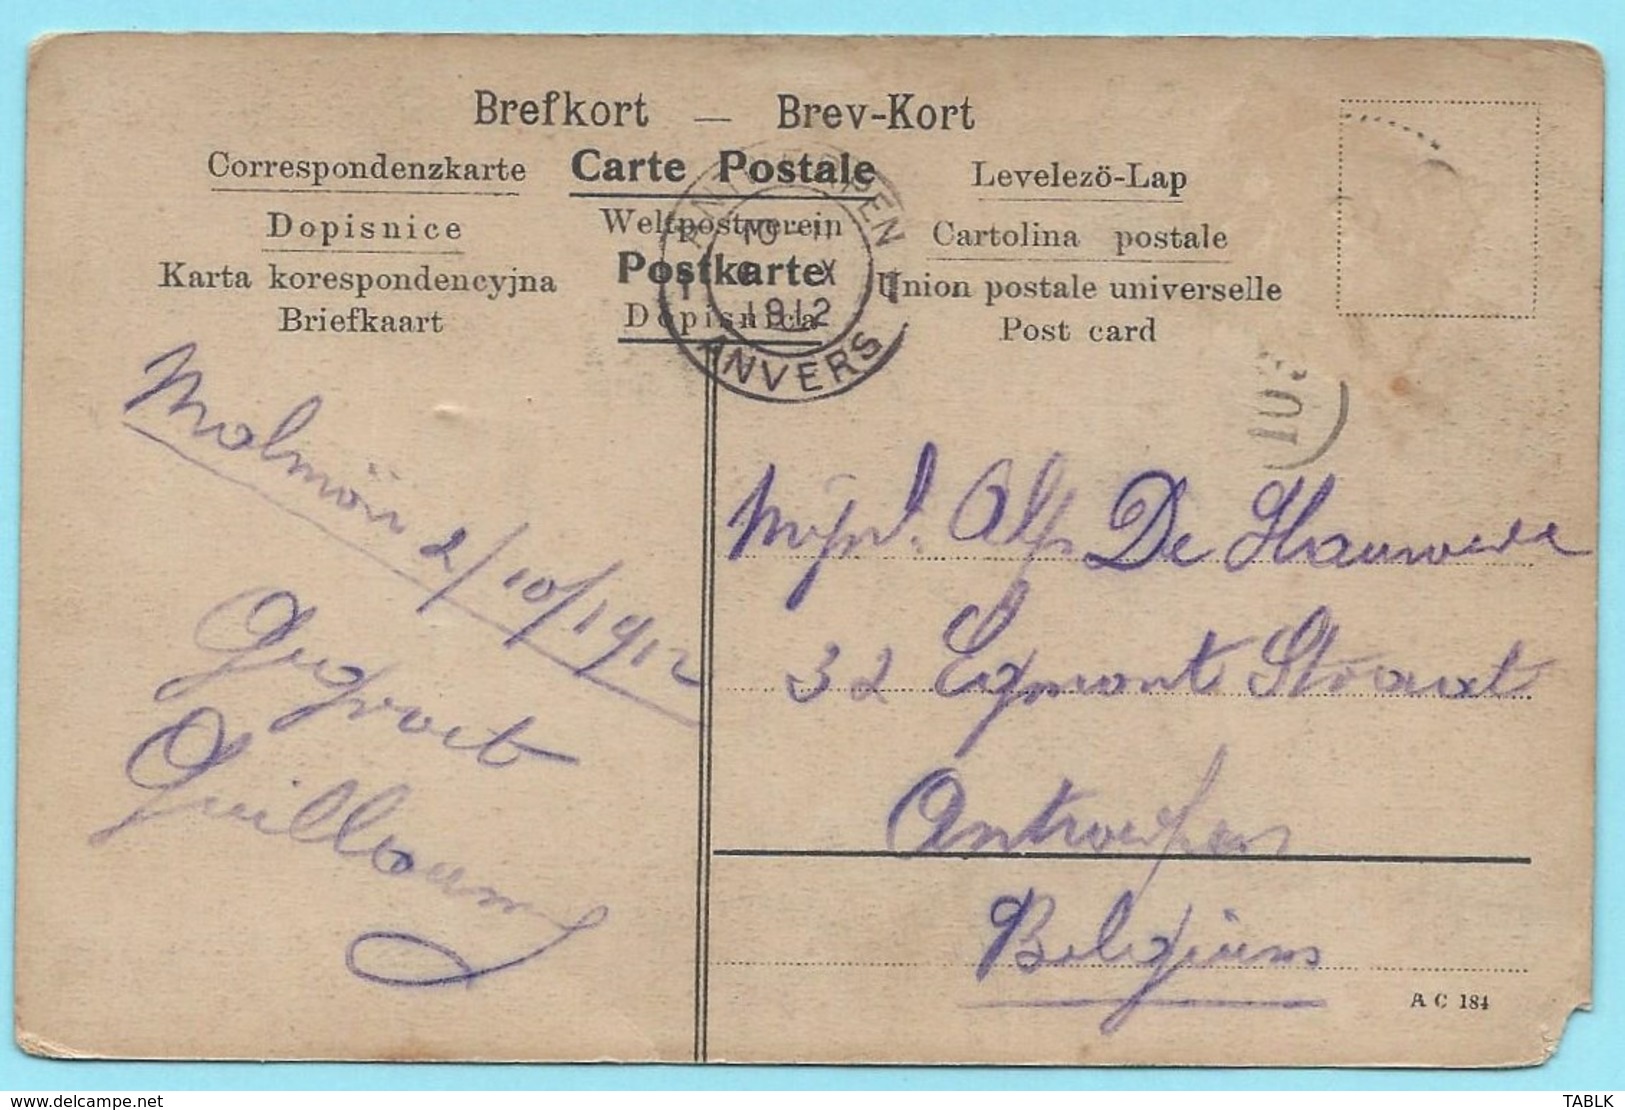 Brefkort — Brev-Kort
Correspondenzkarte Carte Postale Levelezö-Lap
Dopisnice Weltpostverein Cartolina postale
Karta korespondencyjna Postkarte Union postale universelle
Briefkaart Dopisnica Post card
ANTWERPEN 1
10-11
X
1912
ANVERS
Malmön 2/10/1912
Gegroet
Guillaume
Mejuf. Alf De Hauwere
32 Egmont Straat
Antwerpen
Belgium
AC 184
www.delcampe.net
TABLK